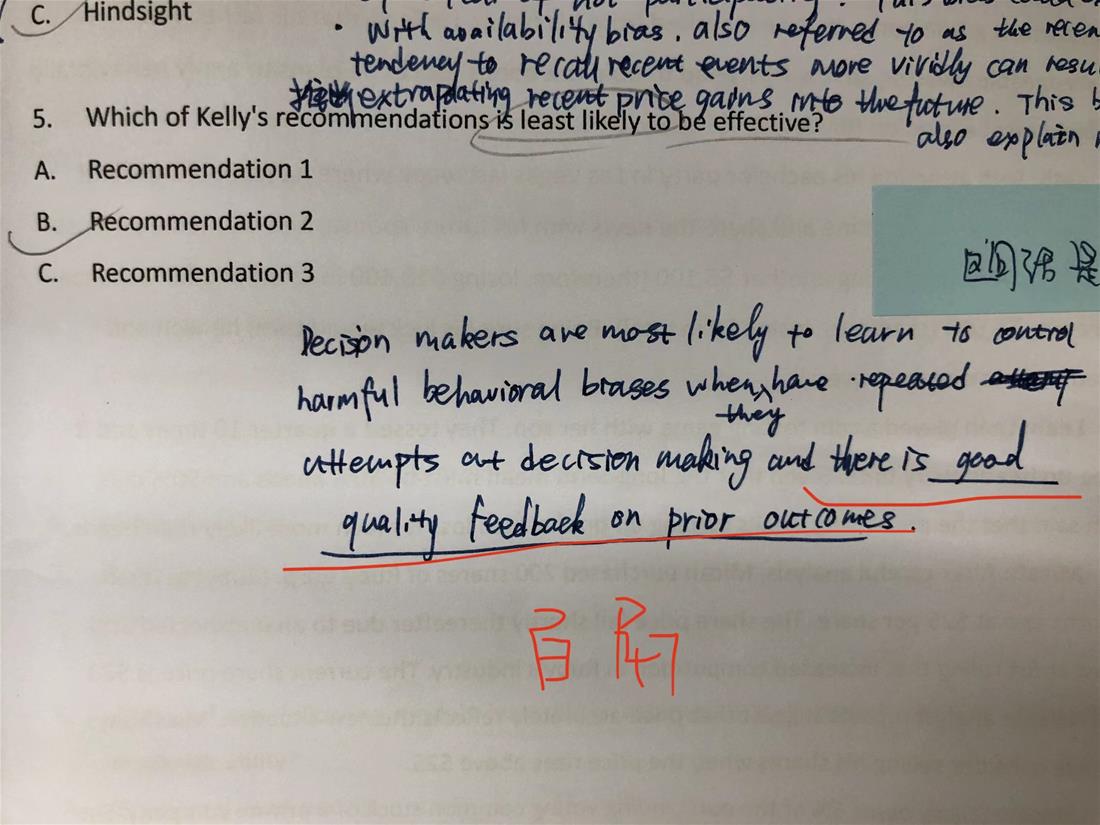 C. Hindsight
• With availability bias. also referred to as the recen
tendency to recall recent events more vividly can resu
extrapolating recent price gains into the future. This b
also explain
5. Which of Kelly's recommendations is least likely to be effective?
A. Recommendation 1
B. Recommendation 2
C. Recommendation 3
Decision makers are most likely to learn to control
harmful behavioral biases when they have repeated
attempts at decision making and there is good
quality feedback on prior outcomes.